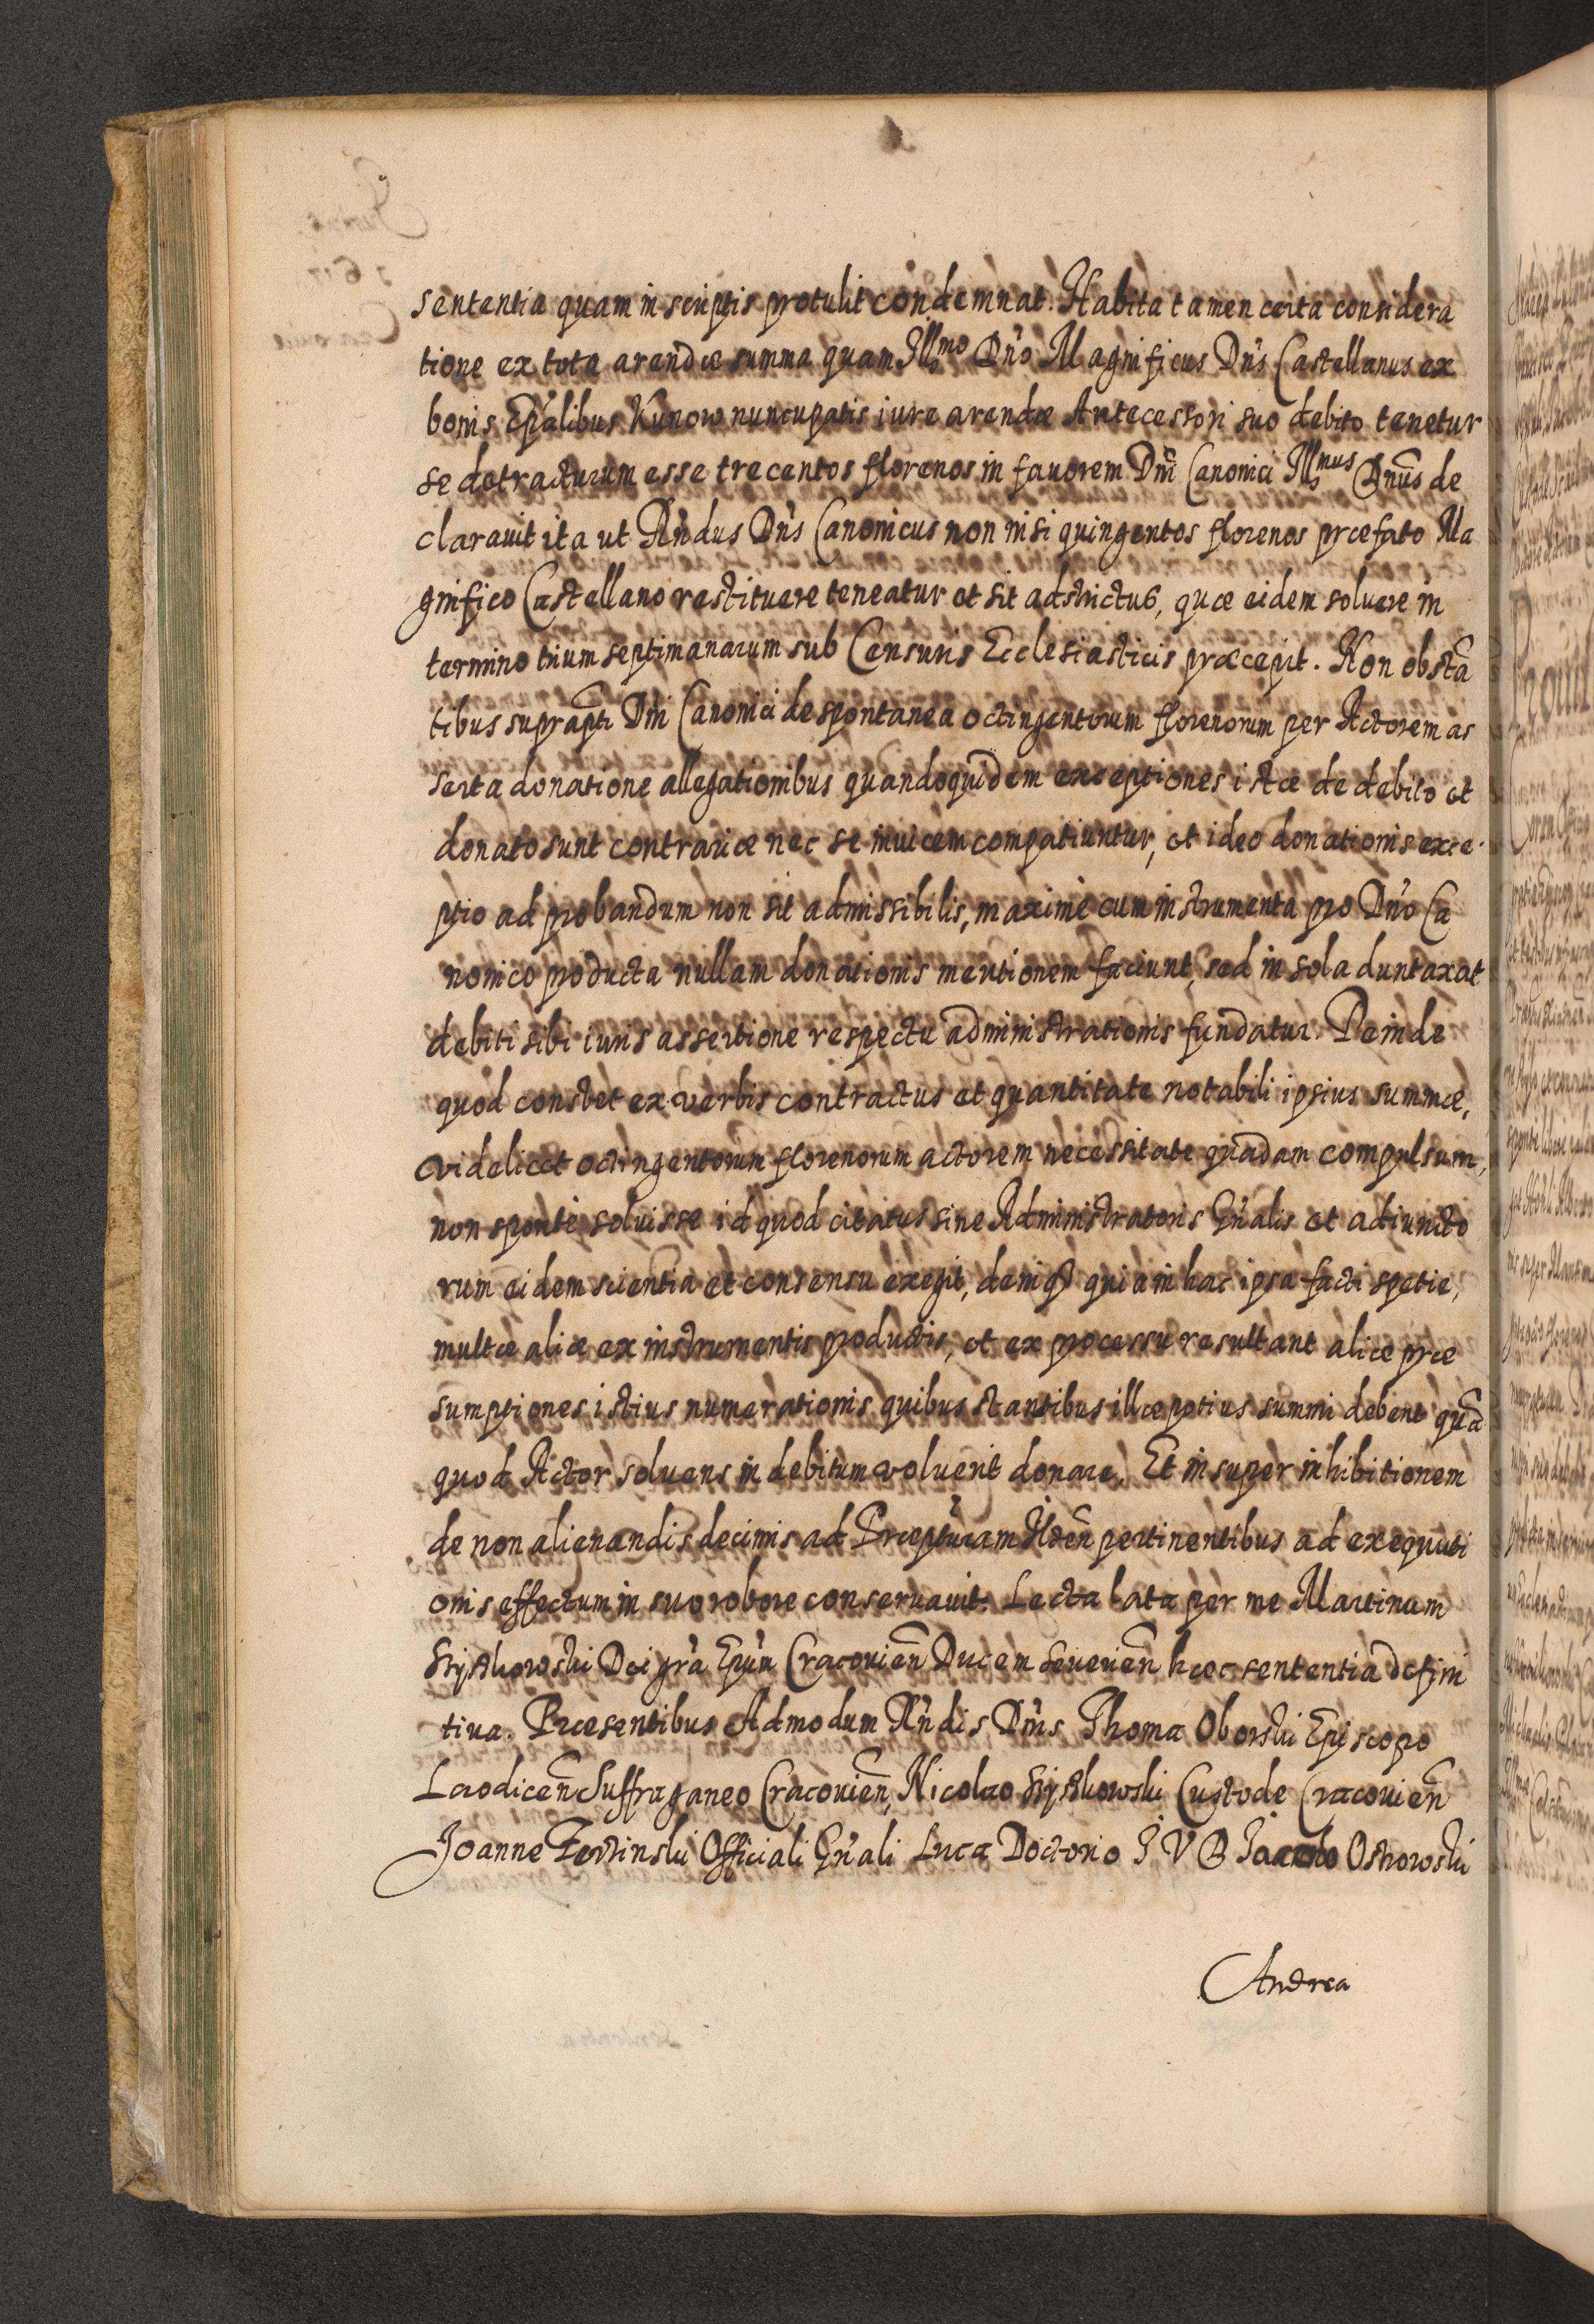 sententia quam in scriptis protulit condemnat. Habita tamen certa considera
tione ex tota arendæ summa quam Illmo Dno Magnificus Dns Castellanus ex
bonis Epalibus Kunow nuncupatis iure arendæ Antecessori suo debito tenetur
se detracturum esse trecentos florenos in fauorem Dni Canonici Illmus Dnus de
clarauit ita ut Rndus Dns Canonicus non nisi quingentos florenos præfato Ma
gnifico Castellano restituere teneatur et sit adstrictus, quæ eidem soluere in
termino trium septimanarum sub Censuris Ecclesiasticis præcepit. Non obsta
tibus suprapti Dni Canonici de spontanea octingentorum florenorum per Actorem as
serta donatione allegationibus quandoquidem exceptiones istæ de debito et
donato sunt contrariæ nec se inuicem compatiuntur, et ideo donationis exce
ptio ad probandum non sit admissibilis, maxime cum instrumenta pro Dno Ca
nonico producta nullam donationis mentionem faciunt, sed in sola duntaxat
debiti sibi iuris assertione respectu administrationis fundatur. Deinde
quod constet ex verbis contractus et quantitate notabili ipsius summæ,
videlicet octingentorum florenorum actorem necessitate quadam compulsum,
non sponte soluisse id quod citatus sine Administratoris Gnalis et adiuncto
rum eidem scientia et consensu exegit, deniq quia in hac ipsa facti spetie,
multæ aliæ ex instrumentis productis, et ex processu resultant aliæ præ
sumptiones istius numerationis quibus stantibus illæ potius summi debent qua
quod Actor soluens indebitum voluerit donare. Et insuper inhibitionem
de non alienandis decimis ad Præpturam pertinentibus ad exequuti
onis effectum in suo robore conseruauit. Lecta lata per me Martinum
Szyszkowski Dei gra Epum Cracouien Ducem Seuerien hæc sententia defini
tiua. Præsentibus Admodum Rndis Dnis Thoma Oborski Episcopo
Laodicen Suffraganeo Cracouien, Nicolao Szyszkowski Custode Cracouien
Joanne Officiali Gnali Luca Doctorio I V D Jacobo Ostrowski
Andrea